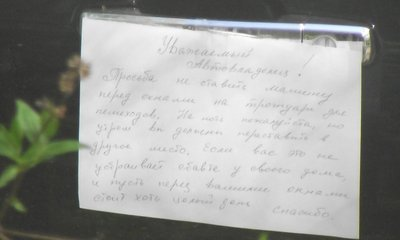 Уважаемый
Автовладелец!
Просьба не ставить машину
перед окнами на тротуаре для
пешеходов. На ночь пожалуйста, но
утром вы должны переставить в
другое место. Если вас это не
устраивает ставте у своего дома,
и пусть перед вашими окнами
стоит хоть целый день
спасибо.